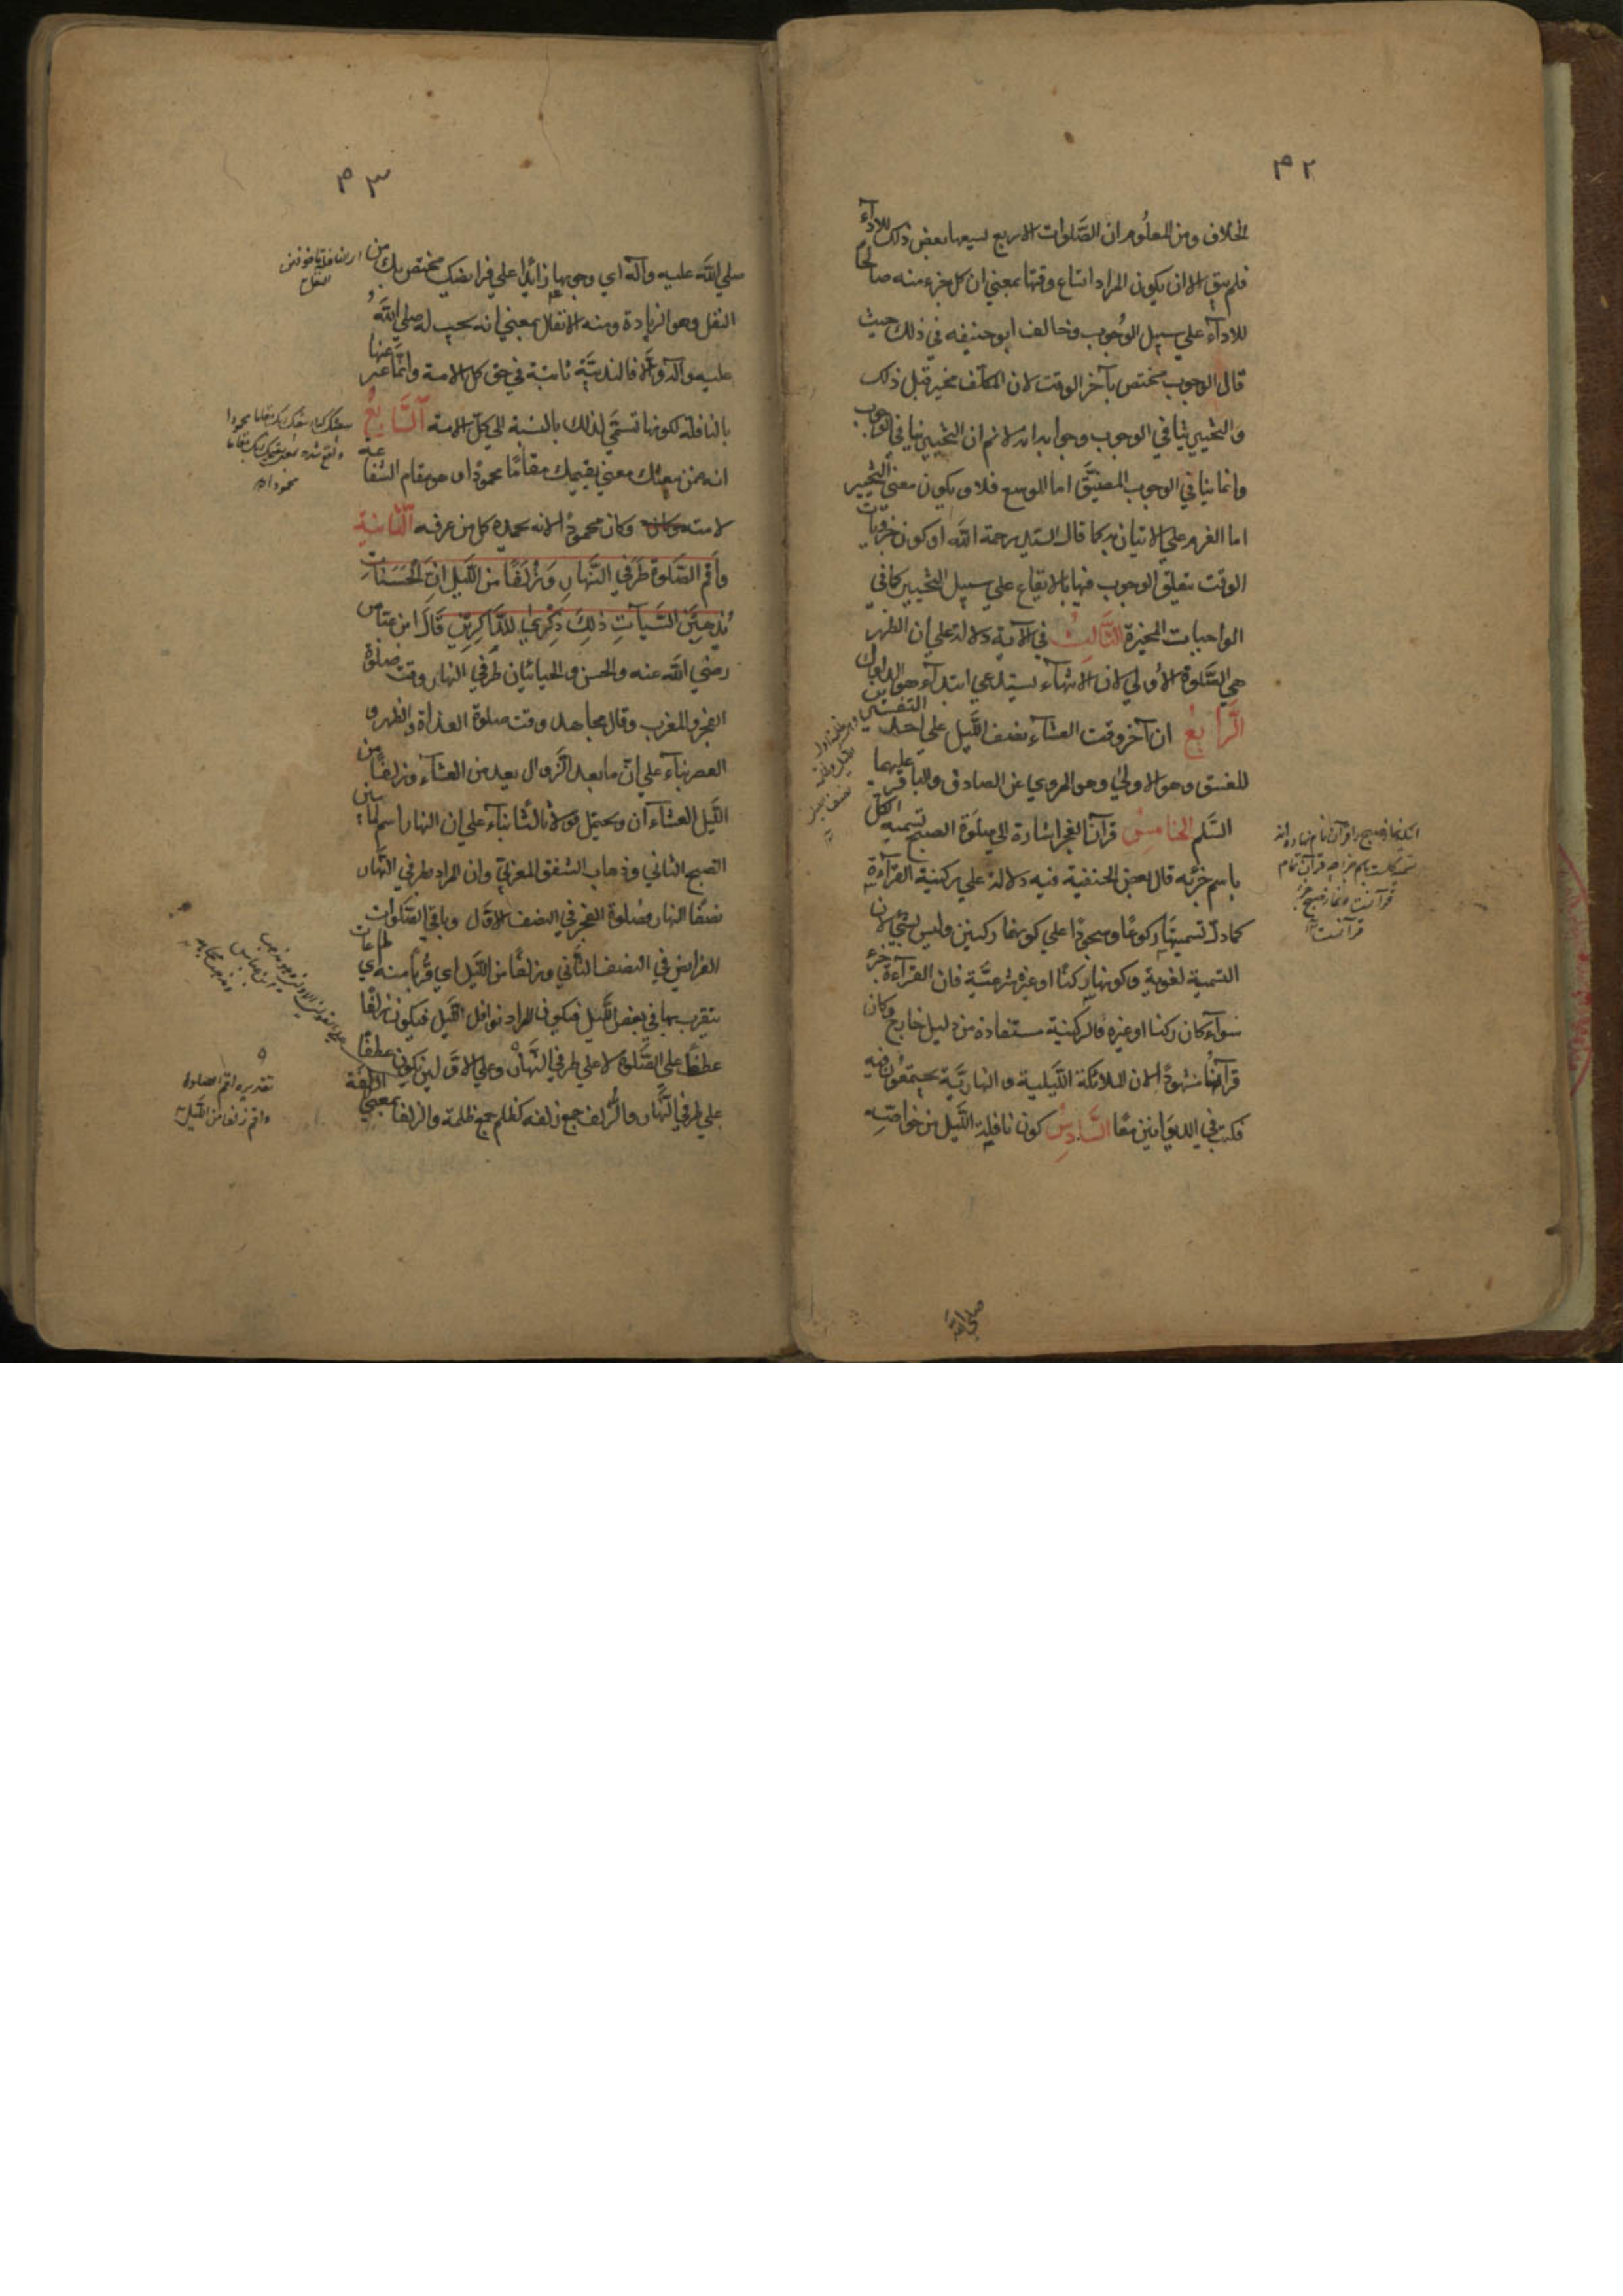 ۴۲
الخلاف ومن المعلوم ان الصَّلوات الاربع لسيعها بعض ذلك للادآء
فلم يبق الا ان يكون المراد اتساع وقتها بمعني ان كل جزء منه صالحا
للادآء علي سبيل الوُجوب وخالف ابو حنيفه في ذلك حيث
قال الوجوب مختص بآخر الوقت لان المكلّف مخير قبل ذلك
والتخيير ينافي الوجوب وجوابه انه لانم ان التخيير ينافي الوجوب
وانما ينافي الوجوب المضيَّق اما الموسع فلا ويكون معني التخيير
اما العزم علي الاتيان به كما قال السيد رحمة اللّه او كون جزويات
الوقت متعلق الوجوب فيها بالايقاع علي سبيل التخيير كما في
الواجبات المخيرة الثَّالِثُ في الآية دلالة علي ان الظهر
هي الصَّلوة الأولي لان الانتهآء يستدعي ابتدآء هو الدلوك
الرَّابعُ ان آخر وقت العشآء نصف اللّيل علي احد التفسيرين
للغسق وهو الاولي وهو المروي عن الصادق والباقر عليهما
السَّلم الخامِسُ قرآن الفجر اشارة الي صلوة الصبح تسميه الكل
باسم جزئه قال بعض الحنفية فيه دلالة علي ركنية القرآءة
كما دلّ تسميتها ركوعًا وسجودًا علي كونهما ركنين وليس بشيء لان
التسمية لغوية وكونها ركنًا او غيره شرعيَّة فان القرآءة جزء
سوآء كان ركنا او غيره فالركنية مستفادة من دليل خارج وكان
قرآنها مشهودًا لان الملائكة اللّيلية والنهاريَّة يجتمعون فيه
فكتب في الديوانين معًا السَّادِسُ كون نافلة اللّيل من خواصّه
صلي اللّه
۴۳
صلي اللّه عليه وآله اي وجوبها زائدًا علي فرايضك مختص بك من
النفل وهو الزيادة ومنه الانفال بمعني انه يجب له صلي اللّهُ
عليه وآله والّا فالندبيَّة ثابتة في حق كل الامة وانّما عبر عنها
بالنافلة لكونها تسمَّي لذلك بالنسبة الي كل الامة السَّابعُ
انه ضمن يبعثك معني يقيمك مقامًا محمودًا وهو مقام الشفاعة
لامته وكان محمودًا لانه يحمده كل من عرفه الثّانِية
وَاَقِمِ الصَّلوة طَرَفيِ النَّهارِ وَزُلَفًا مِنَ اللَّيلِ اِنَّ الْحَسَنَاتِ
يُذهِبنَ السَّيآتِ ذلِكَ ذِكْري لِلذَّاكِرينَ قَالَ ابن عباس
رضي اللّه عنه والحسن والجبائيان طرفي النهار وقت صلوة
الفجر والمغرب وقال مجاهد وقت صلوة الغداة والظهر و
العصر بناء علي انّ ما بعد الزّوال يعد من العشآء وزلفًا من
اللّيل العشاءآن ويحتمل قولا ثالثا بناء علي ان النهار اسم لما بين
الصبح الثاني وذهاب الشفق المغربيّ وان المراد بطرفي النَّهار
نصفا النهار فصلوة الفجر في النصف الاوّل وباقي الصَّلوات
الفرايض في النصف الثّاني وزلفًا من اللّيل اي قُربًا منه اي طاعات
يتقرب بها في بعض اللّيل فيكون المراد نوافل اللّيل فيكون زلفًا
عطفًا علي الصَّلوة لا علي طرفي النَّهار وعلي الاوّلين يكون عطفًا
علي طرفي النَّهار والزُّلف جمع زلفه كظلم جمع ظلمة والزلفا بمعني الزلفة
تقديره اقم الصلوة
واقم زلفا من اللّيل